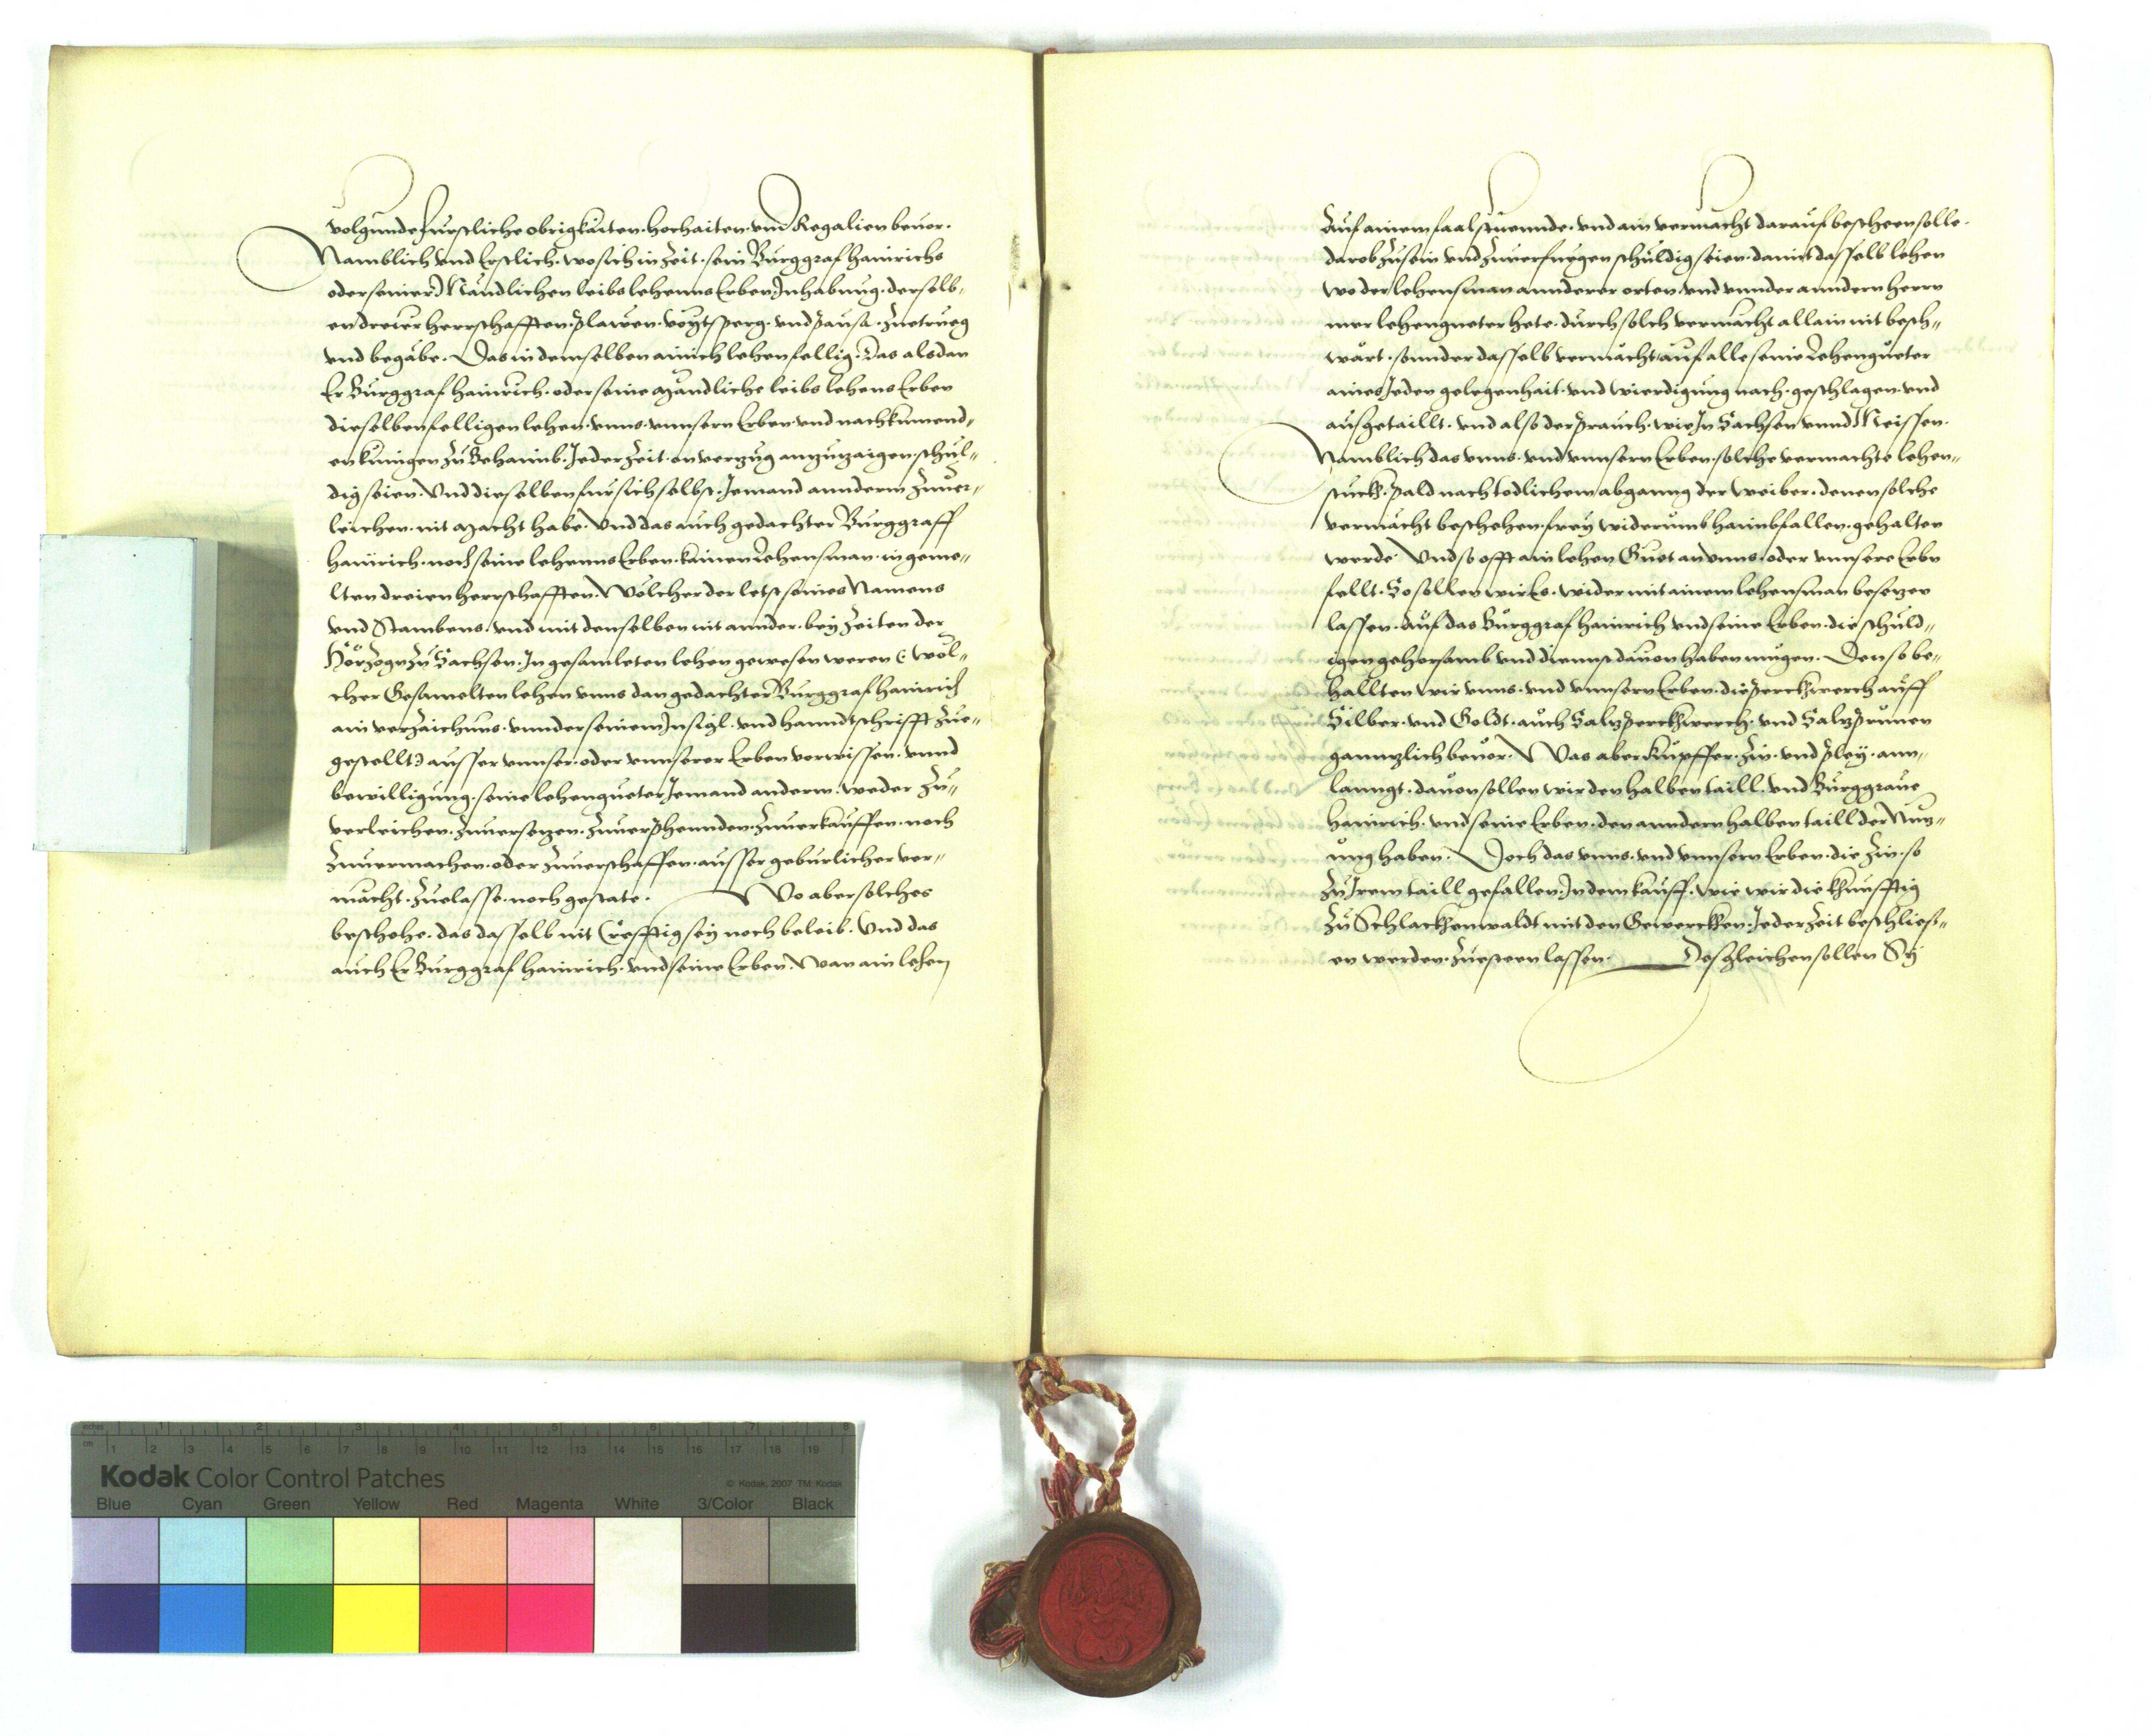 volgunde furstliche obrigkaiten. hochaiten. und Regalien bevor.
Namblich und Erstlich. wo sich in Zeit. sein Burggraf Hainrichs
oder seiner Mandlichen leibs lehenns Erben Inhabung. derselb„
en dreier herrschafften. plawen. voytsperg. und pausa. zuetrueg
und begabe. Das in demselben ainich lehen fellig. Das alsdan
Er Burggraf Hainrich. oder seine Mandliche leibs lehens Erben
dieselben felligen lehen. unns. unnsern Erben. und nachkumend„
en kunigen zu Behaimb. Jeder Zeit. on verzug anzuzaigen. schul„
dig seien. Und dieselben fur sich selbst. Jemand annderm Zuver„
leichen. nit Macht habe. Und das auch gedachter Burggraff
Hainrich. noch seine lehenns Erben. kainen Lehensman. in geme„
lten dreien herrschafften. Wölcher der letst seines Namens
und Stambens. und mit denselben nit annder. bey Zeiten der
Hörzogn zu Sachsen. In gesamleten lehen gewesen weren (: wöl„
cher Gesamelten lehen unns dan gedachter Burggraf Hainrich
ain verzaichnus. unnder seinem Insigl. und hanndtschrifft Zue„
gestellt:) ausser unnser. oder unnserer Erben vorwissen. unnd
bewilligung. seine lehengueter Jemand anderm. weder Zu„
verleichen. Zuversezen. Zuverphennden. Zuverkauffen. noch
Zuvermachen. oder Zuverschaffen. ausser geburlicher ver„
macht. Zuelasse. noch gestate. Wo aber solches
beschehe. das dasselb nit Crefftig sey noch beleib. Und das
auch Er Burggraf Hainrich. und seine Erben. Wan ain lehen
Auf ainem faal stuennde. und ain vermacht darauf bescheen solle.
darob zu sein und Zuverfuegen schuldig seien. damit dasselb lehen
wo der lehensman annderer orten. und unnder anndern herrn
mer lehengueter hete. durch solch vermacht allain nit besch„
wärt. sonnder dasselb vermacht auf alle seine Lehengueter
aines Jeden gelegenhait. und wierdigung nach. geschlagen. und
ausgetaillt. und also der prauch. wie In Sachsen unnd Meissen.
Namblich das unns. und unnsern Erben. solche vermachte lehen„
stuckh. pald nach todlichem abganng der weiber. denen solche
vermacht beschehen. frey widerumb haimbfallen. gehalten
werde. Und so offt ain lehen Guet an unns. oder unnsere Erbn
fellt. So sollen wir Es. wider mit ainem lehensman besezen
lassen. Auf das Burggraf Hainrich und seine Erben. die schuld„
igen gehorsamb und diennst davon haben mugen. Den so be„
hallten wir unns. und unnsern Erben. die perckhwerch auff
Silber. und Goldt. auch Salzperckhwerch. und Salzprunen
gannzlich bevor. Was aber Kupffer. Zin. und pley. ann„
lanngt. davon sollen wir den halben taill. und Burggrave
Hainrich. und seine Erben. den anndern halben taill der Nuz„
ung haben. Doch das unns. und unnsern Erben. die Zin. so
zu Irem taill gefallen. In dem kauff. wie wir die khunfftig
zu Schlackhenwaldt mit den Gewerckhen. Jeder Zeit beschliess„
en werden. Zuesteen lassen. Desgleichen sollen Sy
Kodak Color Control Patches
© Kodak, 2007 TM: Kodak
Blue Cyan Green Yellow Red Magenta White 3/Color Black